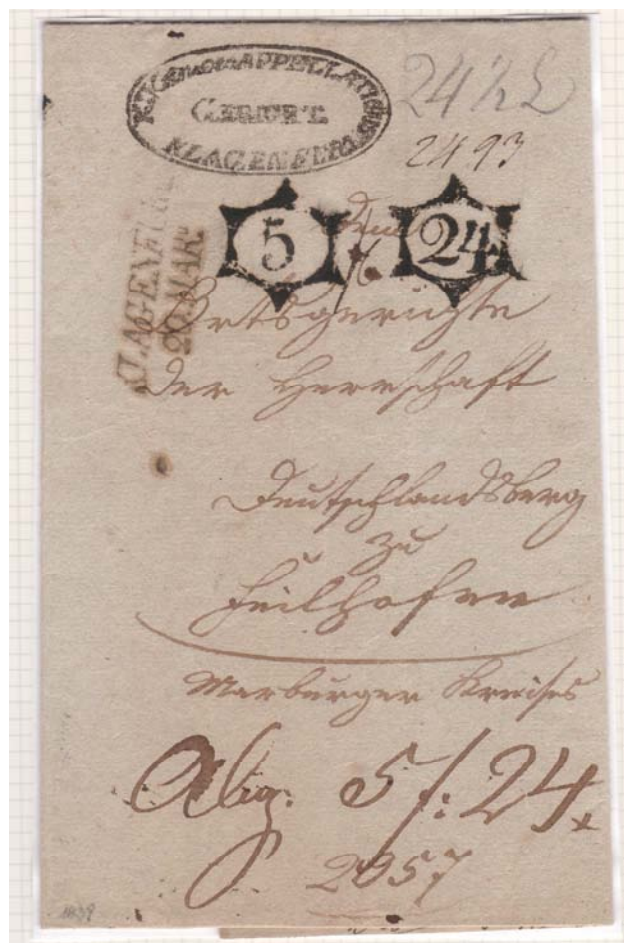 K.K. APPELLATIONS
GERICHT
KLAGENFURT
24
2493
KLAGENFURT
20. MAR.
5 24
Dem
Ortsgerichte
der Herrschaft
Deutschlandsberg
zu
Feilhofen
Marburger Kreises
5 f: 24
2057